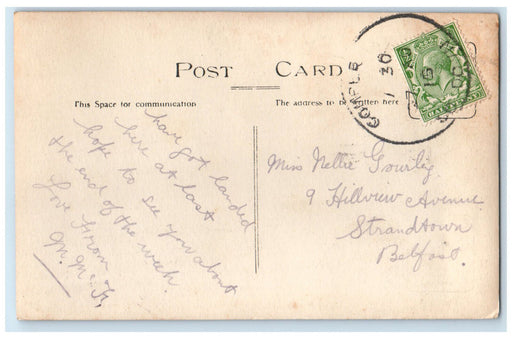 POST CARD
This Space for communication
The address to be written here
have got landed
here at last
hope to see you about
the end of the week.
Love from
M. Mc
Miss Nellie Gourlig
9 Hillview Avenue
Strandtown
Belfast.
COMBER
1 30